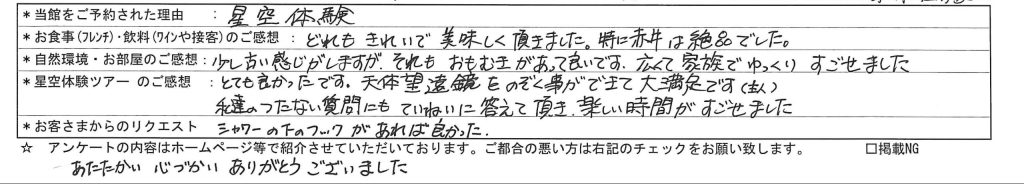 *当館をご予約された理由 : 星空体験
*お食事(フレンチ)・飲料(ワインや接客)のご感想 : どれも きれいで 美味しく 頂きました。特に赤牛は絶品でした。
*自然環境・お部屋のご感想 : 少し古い感じがしますが、それも おもむきがあって良いです。広くて 家族で ゆっくり すごせました
*星空体験ツアー のご感想 : とても良かったです。天体望遠鏡をのぞく事ができて 大満足です
私達のつたない質問にも ていねいに 答えて 頂き、楽しい時間が すごせました
*お客さまからのリクエスト シャワーの下のフックがあれば良かった.
☆ アンケートの内容はホームページ等で紹介させていただいております。ご都合の悪い方は右記のチェックをお願い致します。 □掲載NG
あたたかい 心づかい ありがとう ございいました